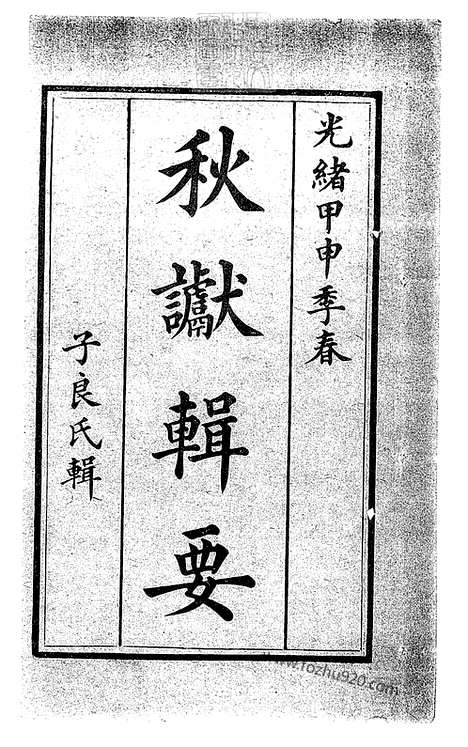 光緒甲申季春
秋讞輯要
子良氏輯
www.fozhu920.com